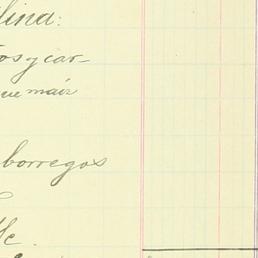 lina:
os y car-
que maiz
borregos